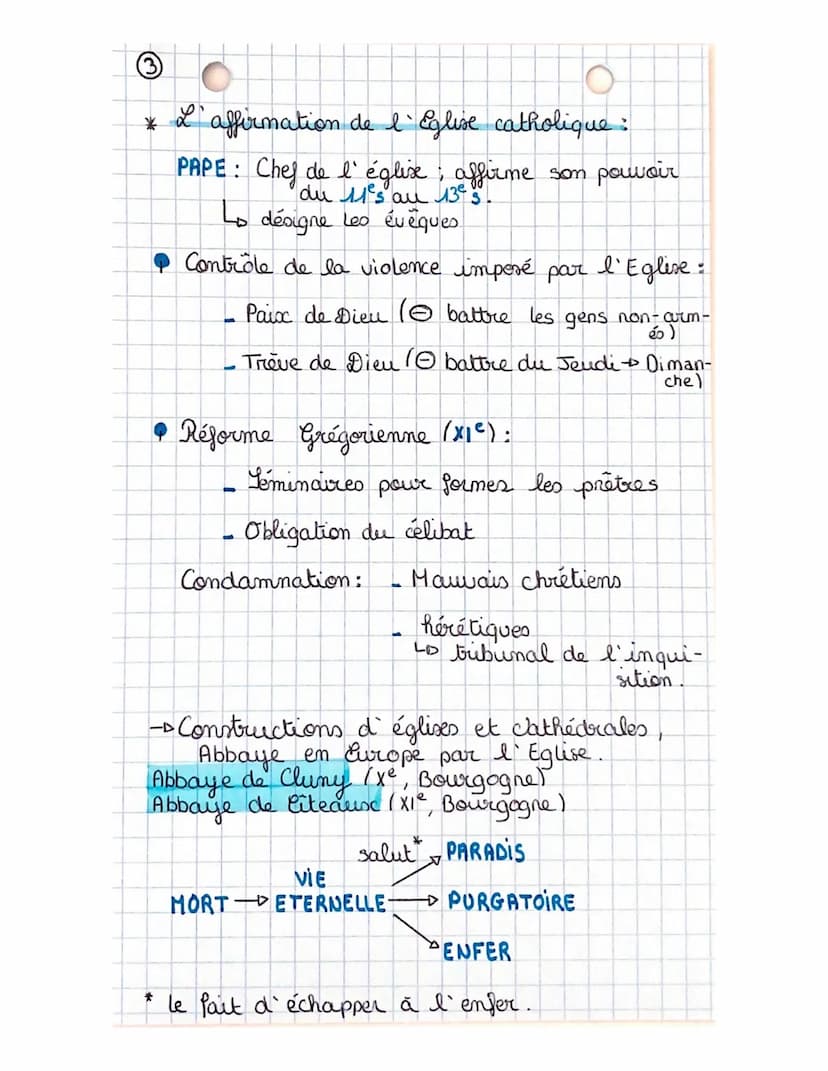 ③
* L'affirmation de l'Eglise catholique :
PAPE : Chef de l'église ; affirme son pouvoir
du 11es au 13es.
↳ désigne les évêques
Contrôle de la violence imposé par l'Eglise :
- Paix de Dieu (⊖ battre les gens non-arm-
és)
- Trève de Dieu (⊖ battre du Jeudi → Diman-
che)
Réforme Grégorienne (XIe) :
- Séminaires pour former les prêtres
- Obligation du célibat
Condamnation : - Mauvais chrétiens
- hérétiques
↳ tribunal de l'inqui-
sition.
→ Constructions d'églises et Cathédrales,
Abbaye en Europe par l'Eglise.
Abbaye de Cluny (Xe, Bourgogne)
Abbaye de Citeaux (XIe, Bourgogne)
salut* PARADIS
VIE
MORT → ETERNELLE → PURGATOIRE
ENFER
* le fait d'échapper à l'enfer.